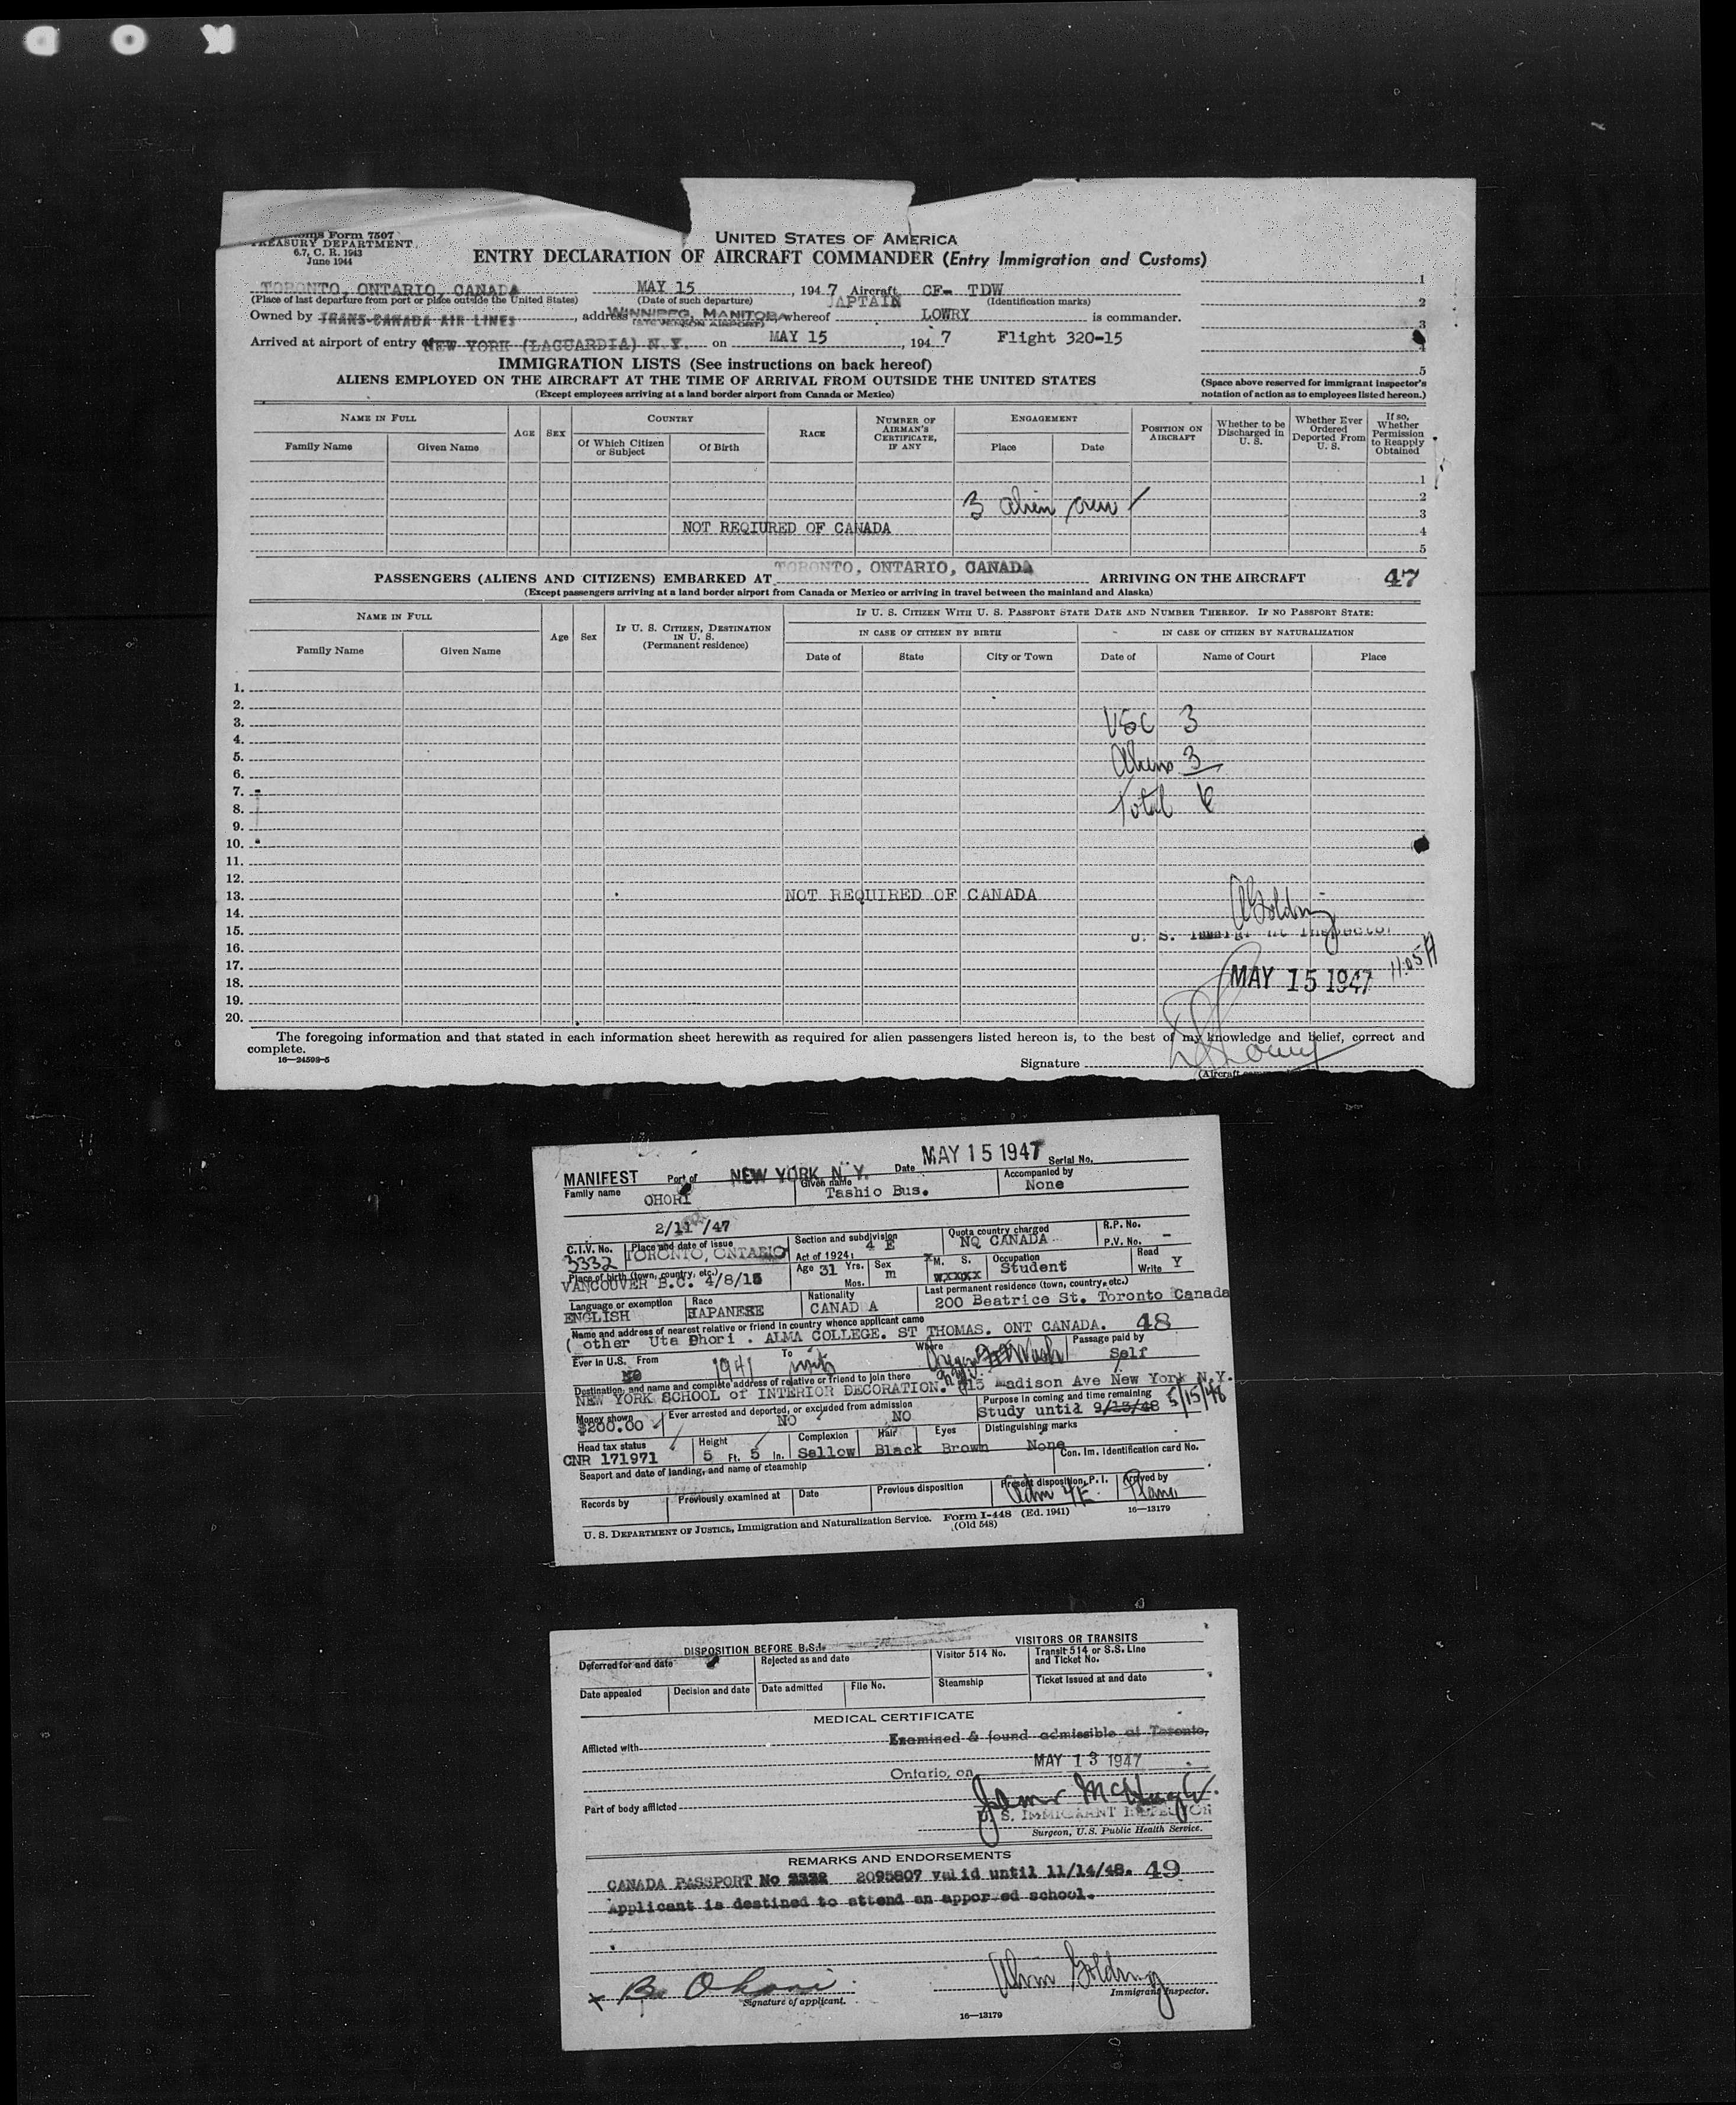 Customs Form 7507
TREASURY DEPARTMENT
6.7, C. R. 1943
June 1944
UNITED STATES OF AMERICA
ENTRY DECLARATION OF AIRCRAFT COMMANDER (Entry Immigration and Customs)
TORONTO, ONTARIO, CANADA MAY 15, 1947 Aircraft CF- TDW
(Place of last departure from port or place outside the United States) (Date of such departure) (Identification marks)
APTAIN
Owned by TRANS-CANADA AIR LINES, address WINNIPEG, MANITOBA whereof LOWRY is commander.
(STEVENSON AIRPORT)
Arrived at airport of entry NEW YORK (LAGUARDIA) N.Y. on MAY 15, 1947 Flight 320-15
1
2
3
4
5
(Space above reserved for immigrant inspector's notation of action as to employees listed hereon.)
IMMIGRATION LISTS (See instructions on back hereof)
ALIENS EMPLOYED ON THE AIRCRAFT AT THE TIME OF ARRIVAL FROM OUTSIDE THE UNITED STATES
(Except employees arriving at a land border airport from Canada or Mexico)
NAME IN FULL
Family Name Given Name
AGE SEX
COUNTRY
Of Which Citizen or Subject Of Birth
RACE
NUMBER OF AIRMAN'S CERTIFICATE, IF ANY
ENGAGEMENT
Place Date
POSITION ON AIRCRAFT
Whether to be Discharged in U. S.
Whether Ever Ordered Deported From U. S.
If so, Whether Permission to Reapply Obtained
1
2
3 alien crew
3
NOT REQIURED OF CANADA
4
5
PASSENGERS (ALIENS AND CITIZENS) EMBARKED AT TORONTO, ONTARIO, CANADA ARRIVING ON THE AIRCRAFT 47
(Except passengers arriving at a land border airport from Canada or Mexico or arriving in travel between the mainland and Alaska)
NAME IN FULL
Family Name Given Name
Age Sex
IF U. S. CITIZEN, DESTINATION IN U. S. (Permanent residence)
IF U. S. CITIZEN WITH U. S. PASSPORT STATE DATE AND NUMBER THEREOF. IF NO PASSPORT STATE:
IN CASE OF CITIZEN BY BIRTH IN CASE OF CITIZEN BY NATURALIZATION
Date of State City or Town Date of Name of Court Place
1.
2.
3. USC 3
4.
5. Aliens 3
6.
7. Total 6
8.
9.
10.
11.
12.
13. NOT REQUIRED OF CANADA
14. A Golding
15. U. S. Immigrant Inspector
16. 11:05 A
17. MAY 15 1947
18.
19.
20.
The foregoing information and that stated in each information sheet herewith as required for alien passengers listed hereon is, to the best of my knowledge and belief, correct and
complete.
16—24593-5
Signature
(Aircraft
MANIFEST Port of NEW YORK N.Y. Date MAY 15 1947 Serial No.
Family name OHORI Given name Tashio Bus. Accompanied by None
2/11/47
C.I.V. No. 3332 Place and date of issue TORONTO, ONTARIO Section and subdivision Act of 1924: 4 E Quota country charged NQ CANADA R.P. No. P.V. No. -
Place of birth (town, country, etc.) VANCOUVER B.C. 4/8/16 Age 31 Yrs. Mos. Sex m M. S. Occupation Student Read Write Y
Language or exemption ENGLISH Race HAPANESE Nationality CANAD A Last permanent residence (town, country, etc.) 200 Beatrice St. Toronto Canada
Name and address of nearest relative or friend in country whence applicant came 48
( other Uta Dhori . ALMA COLLEGE. ST THOMAS. ONT CANADA.
Ever in U.S. From 1941 To Where Passage paid by Self
Destination, and name and complete address of relative or friend to join there
NEW YORK SCHOOL of INTERIOR DECORATION. 515 Madison Ave New York N.Y.
Money shown $200.00 Ever arrested and deported, or excluded from admission NO NO Purpose in coming and time remaining Study until 9/13/48 5/15/48
Head tax status CNR 171971 Height 5 Ft. 5 In. Complexion Sellow Hair Black Eyes Brown Distinguishing marks None
Seaport and date of landing, and name of steamship Con. Im. Identification card No.
Records by Previously examined at Date Previous disposition Present disposition, P. I. Adm 4E Arrived by Plane
U. S. DEPARTMENT OF JUSTICE, Immigration and Naturalization Service. Form I-448 (Ed. 1941) 16—13179
(Old 548)
DISPOSITION BEFORE B.S.I. VISITORS OR TRANSITS
Deferred for and date Rejected as and date Visitor 514 No. Transit 514 or S.S. Line and Ticket No.
Date appealed Decision and date Date admitted File No. Steamship Ticket issued at and date
MEDICAL CERTIFICATE
Afflicted with Examined & found admissible at Toronto,
Ontario, on MAY 13 1947
James McHugh
Part of body afflicted U. S. IMMIGRANT INSPECTOR
Surgeon, U.S. Public Health Service.
REMARKS AND ENDORSEMENTS
CANADA PASSPORT No 2095807 valid until 11/14/48. 49
Applicant is destined to attend an apporved school.
x B. Ohori Alvin Golding
Signature of applicant. Immigrant Inspector.
16—13179